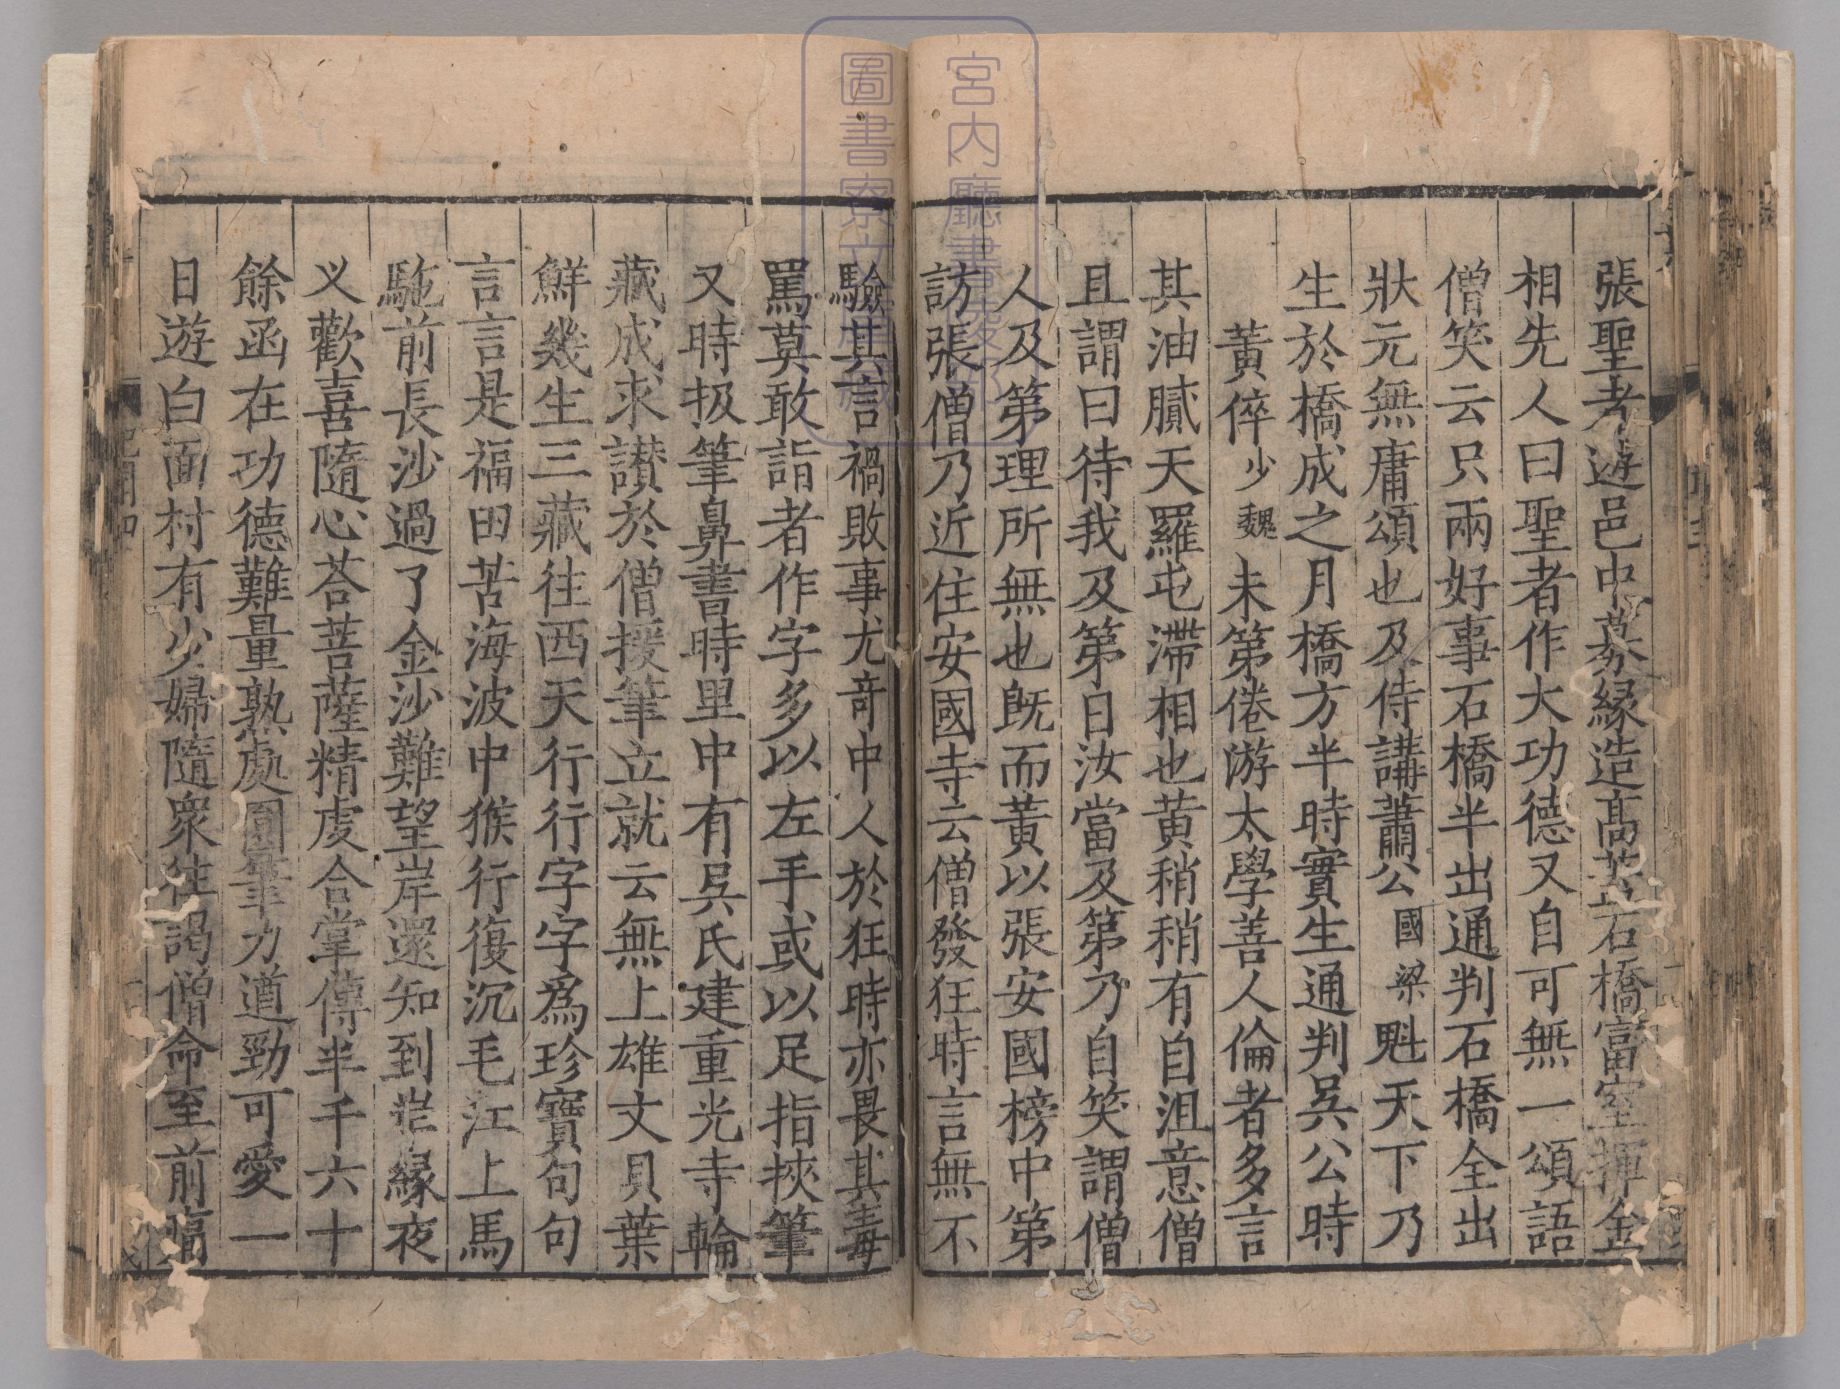 張聖者遊邑中募縁造髙葢石橋富室揮金
相先人曰聖者作大功德又自可無一頌語
僧笑云只兩好事石橋半出通判石橋全出
狀元無庸頌也及侍講蕭公國梁魁天下乃
生於橋成之月橋方半時實生通判吳公時
黃倅少魏未第倦游太學善人倫者多言
其油膩天羅屯滯相也黃稍稍有自沮意僧
且謂曰待我及第日汝當及第乃自笑謂僧
人及第理所無也旣而黃以張安國榜中第
訪張僧乃近住安國寺云僧發狂時言無不
驗其言禍敗事尤竒中人於狂時亦畏其毒
罵莫敢詣者作字多以左手或以足指挾筆
又時扱筆鼻書時里中有吳氏建重光寺輪
藏成求讃於僧援筆立就云無上雄文貝葉
鮮幾生三藏往西天行行字字爲珍寶句句
言言是福田苦海波中猴行復沉毛江上馬
馳前長沙過了金沙難望岸還知到岸縁夜
义歡喜隨心荅菩薩精虔合掌傳半千六十
餘函在功德難量熟處圓筆力遒勁可愛一
日遊白面村有少婦隨衆往謁僧命至前
宮内廳書陵部
圖書寮文庫藏